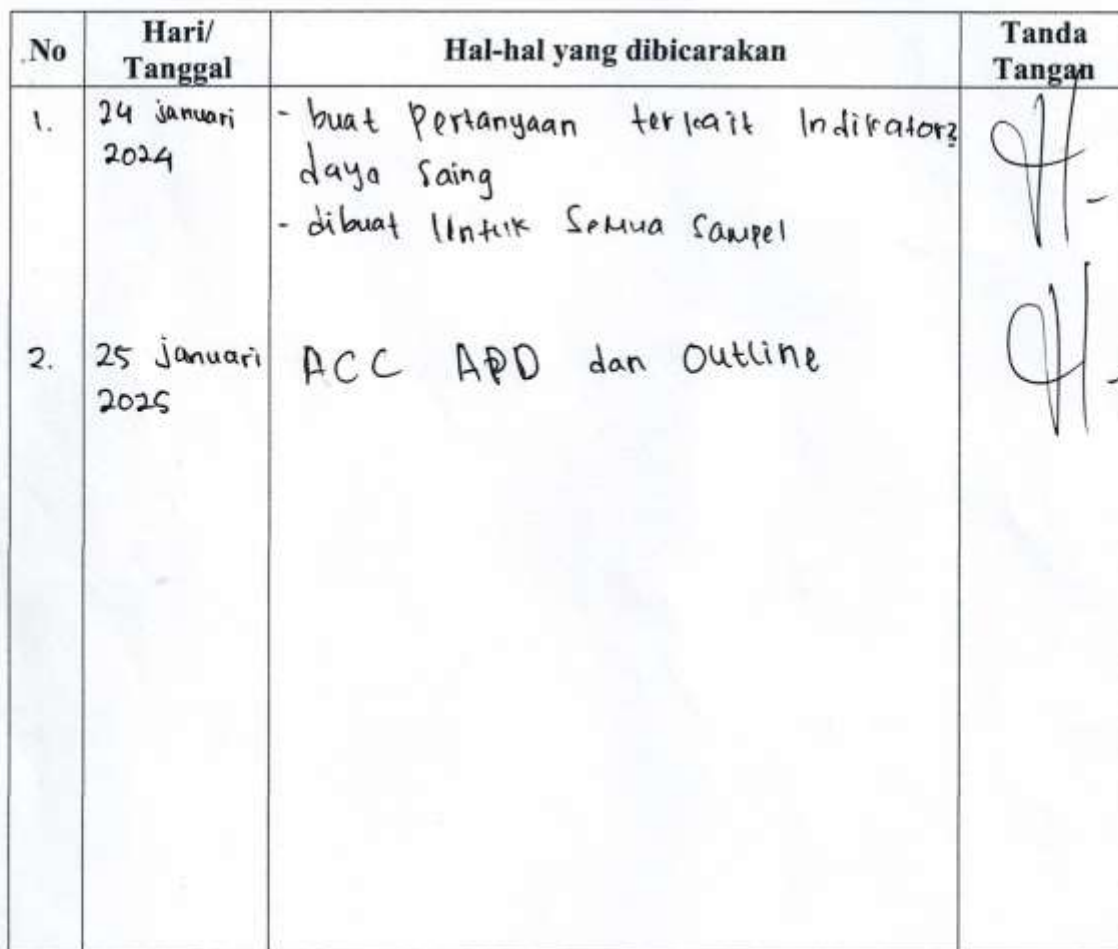 No
Hari/
Tanggal
Hal-hal yang dibicarakan
Tanda
Tangan
1.
24 januari
2024
- buat Pertanyaan terkait Indikator2
daya Saing
- dibuat Untuk Semua Sampel
2.
25 januari
2025
ACC APD dan Outline